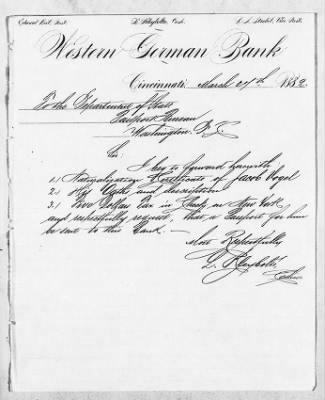 Western German Bank
Cincinnati March 27th 1882
To the Department of State
Passport Bureau
Washington D.C.
Sir:
I beg to forward herewith
1.) Naturalization Certificate of Jacob Vogel
2.) His Oath and description
3.) Five Dollar Tax in Draft on New York
and respectfully request, that a Passport for him
be sent to this Bank. —
Most Respectfully
Cashier